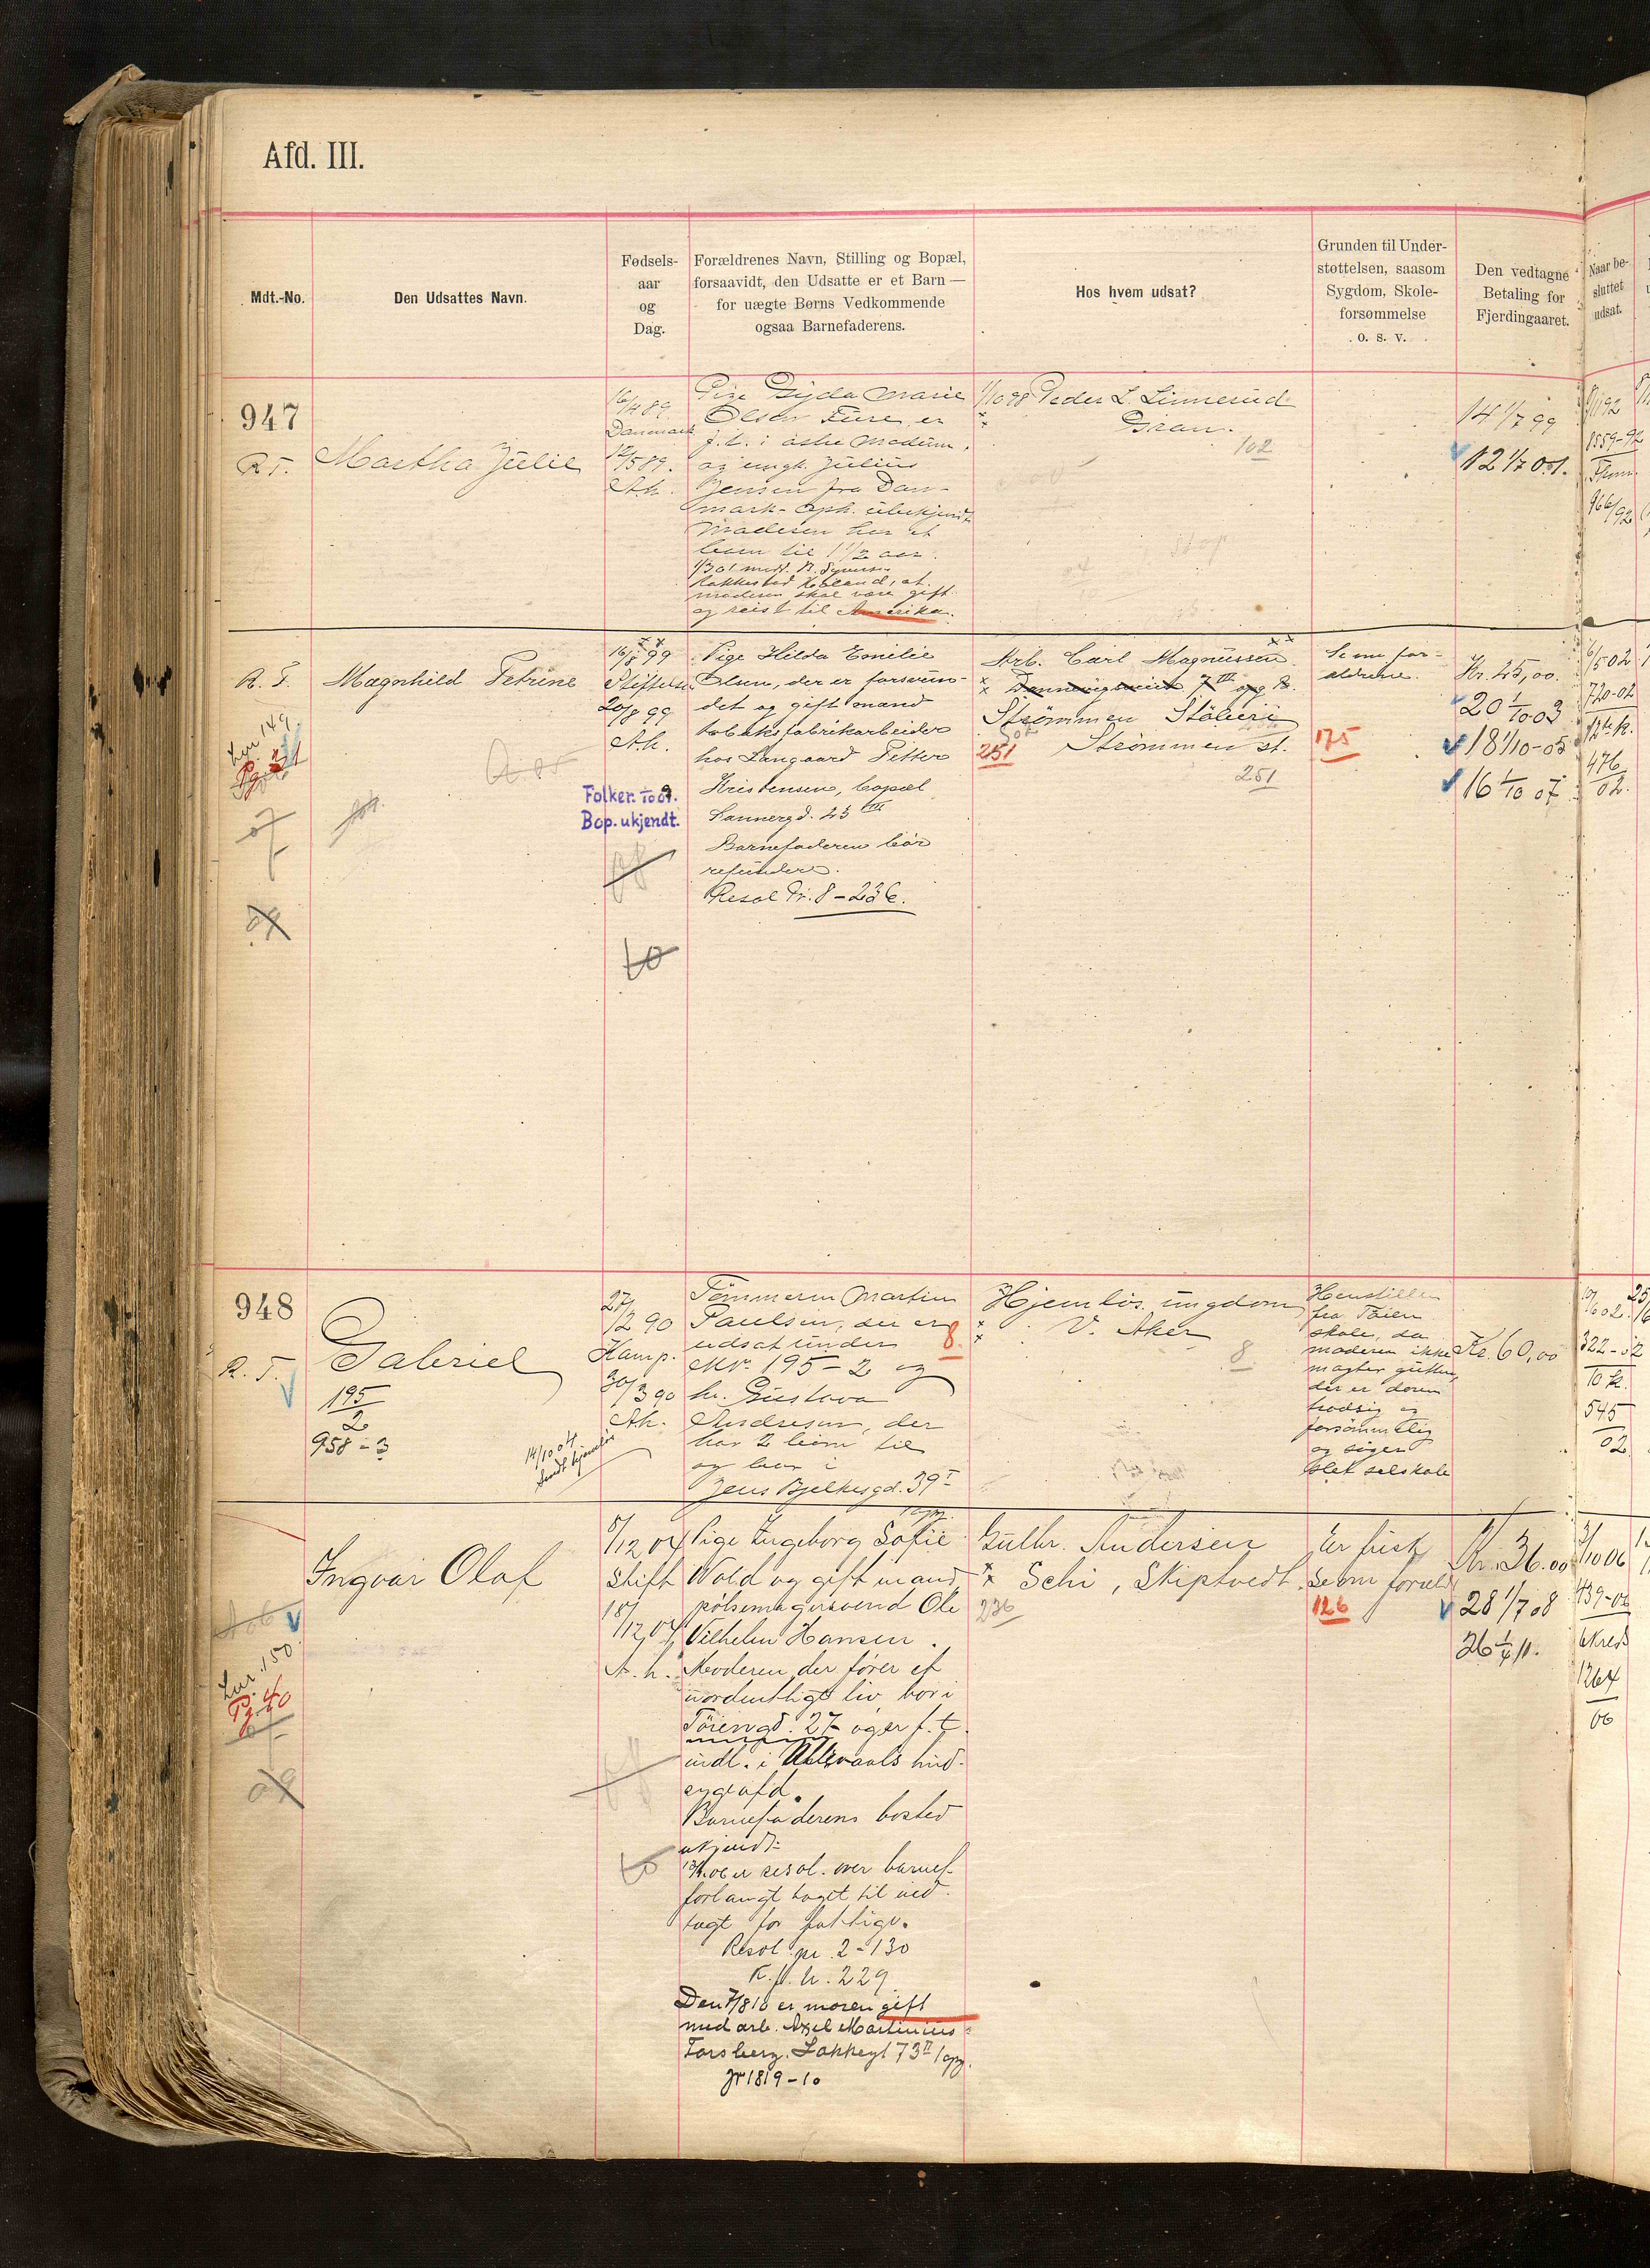 Afd. III.
Mdt.-No.
Den Udsattes Navn.
Fødsels-
aar
og
Dag.
Forældrenes Navn, Stilling og Bopæl,
forsaavidt, den Udsatte er et Barn —
for uægte Børns Vedkommende
ogsaa Barnefaderens.
Hos hvem udsat?
Grunden til Under-
støttelsen, saasom
Sygdom, Skole-
forsømmelse
o. s. v.
Den vedtagne
Betaling for
Fjerdingaaret.
Naar be-
sluttet
udsat.
947
R.T.
Martha Julie
16/4 89.
Danmark
12/5 89.
Ah.
Pige Gyda Marie
Olsen Fure, er
f. t. i østre Modum,
og ungk. Julius
Jensen fra Dan-
mark - Oph. ubekjendt
Moderen har et
barn til 1 1/2 aar.
moderen skal være gift
og reist til Amerika.
1/10 98 Peder L. Linnerud
Gran.
102
14 1/7 99
12 1/7 01.
1559-92
R. T.
Magnhild Petrine
16/8 99
Stiftelsen
20/8 99
Ah.
Folker. 1/10 09.
Bop. ukjendt.
Pige Hilda Emilie
Olsen, der er forsvun-
det og gift mand
tobaksfabrikarbeider
hos Langaard Petter
Kristensen, bopæl
Sannergd. 23 III
Barnefaderen bør
refundere.
Resol Nr. 8 - 236.
Arb. Carl Magnussen
Strömmen Stöberi
251 Strömmen st.
251
Se om for-
ældrene.
175
Kr. 25,00.
20 1/10 03
18 1/10-05
16 1/10 07
6/5 02
720-02
476
02.
Lnr. 149
948
R. T.
Gabriel
195
2
958-3
14/10 04
27/2 90
Kamp.
30/3 90
Ah.
Tømmerm Martin
Paulsen, der er
udsat under
Mr. 195-2 og
h. Gustava
Andresen, der
har 2 børn til
og bor i
Jens Bjelkesgd. 39 I
8.
Hjemløs ungdom
V. Aker
8
Henstillen
fra Tøien
skole, da
moderen ikke
magter gutten,
der er doven
trodsig og
forsømmelig
og søger
slet selskab
Kr. 60,00
322-02
545
02
Ingvar Olaf
Lnr. 150
Pg. 40
8/12 04
Stift
18/12 04
A. h.
Pige Ingeborg Sofie
Wold og gift mand
pølsemagersvend Ole
Vilhelm Hansen.
Moderen der fører et
uordentligt liv bor i
Tøiengd. 27 og er f. t.
indl. i Ullevaals hud-
sygeafd.
Barnefaderens bosted
ukjendt.
er resol. over barnef.
forlangt taget til ind-
tægt for fattigv.
Resol. nr. 2-130
K. p. h. 229
Den 7/8 10 er moren gift
med arb. Axel Martinius
Forsberg. Lakkegt 73 II opg.
Jr 1819-10
Gulbr. Andersen
Schi, Skiptvedt.
236
Er frisk
Se om foræld
126
Kr. 36.00
28 1/7 08
26 1/4 11.
3/10 06
439-06
1264
06